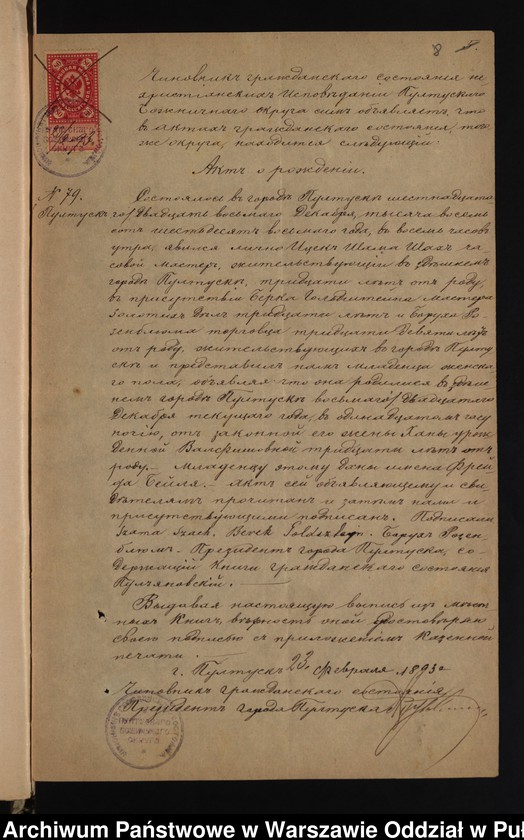 8
Чиновникъ гражданскаго состоянія не
христіанскихъ Исповѣданій Пултускаго
Божничнаго округа симъ объявляетъ, что
въ актахъ гражданскаго состоянія, того
же округа, находится слѣдующій:
Актъ о рожденіи.
№ 79.
Пултускъ
Состоялось въ городѣ Пултускѣ шестнадцата
го/двадцать восьмаго Декабря, тысяча восемь
сотъ шестьдесятъ восьмаго года, въ восемь часовъ
утра, явился лично Ицекъ Шама Шахъ ча
совой Мастеръ, жительствующій въ здѣшнемъ
городѣ Пултускѣ, тридцати лѣтъ отъ роду,
въ присутствіи Берка Голдштейна мастера
золотыхъ дѣлъ тридцати лѣтъ и Баруха Ро
зенблюма торговца тридцати девяти лѣтъ
отъ роду, жительствующихъ въ городѣ Пулту
скѣ и представилъ намъ младенца женска
го пола, объявляя что она родилась въ здѣш
немъ городѣ Пултускѣ восьмаго/двадцатаго
Декабря текущаго года, въ одинадцатомъ часу
ночію, отъ законной его жены Ханы урож
денной тридцати лѣтъ отъ
роду. Младенцу этому даны имена Фрей
да Бейля. Актъ сей объявляющему и сви
дѣтелямъ прочитанъ и затѣмъ нами и
присутствующими подписанъ. Подписали
Szach. Berek Barухъ Розен
блюмъ. Президентъ города Пултуска, со
держащій Книги гражданскаго состоянія
Выдавая настоящую выпись изъ мѣст
ныхъ Книгъ, вѣрность оной удостовѣряю
своею подписью съ приложеніемъ Казенной
печати.
г. Пултускъ 23 Февраля 1893 г
Чиновникъ гражданскаго состоянія
Президентъ города Пултуска
Archiwum Państwowe w Warszawie Oddział w Puł